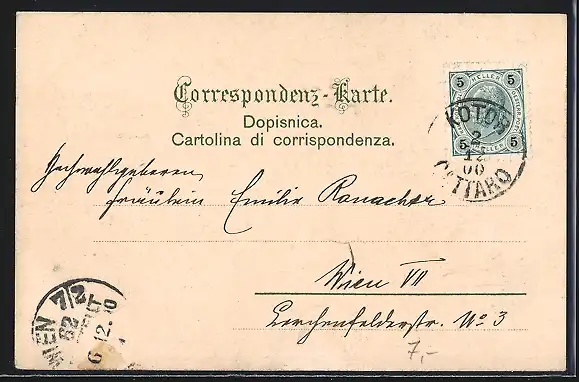 Correspondenz-Karte.
Dopisnica.
Cartolina di corrispondenza.
5 HELLER 5
5 HELLER 5
KOTOR
2
12
00
CATTARO
Hochwohlgeboren
Fräulein Emilie Ranacher
Wien VII
Lerchenfelderstr. No 3
7,-
WIEN 7/2
62
6 12. 00